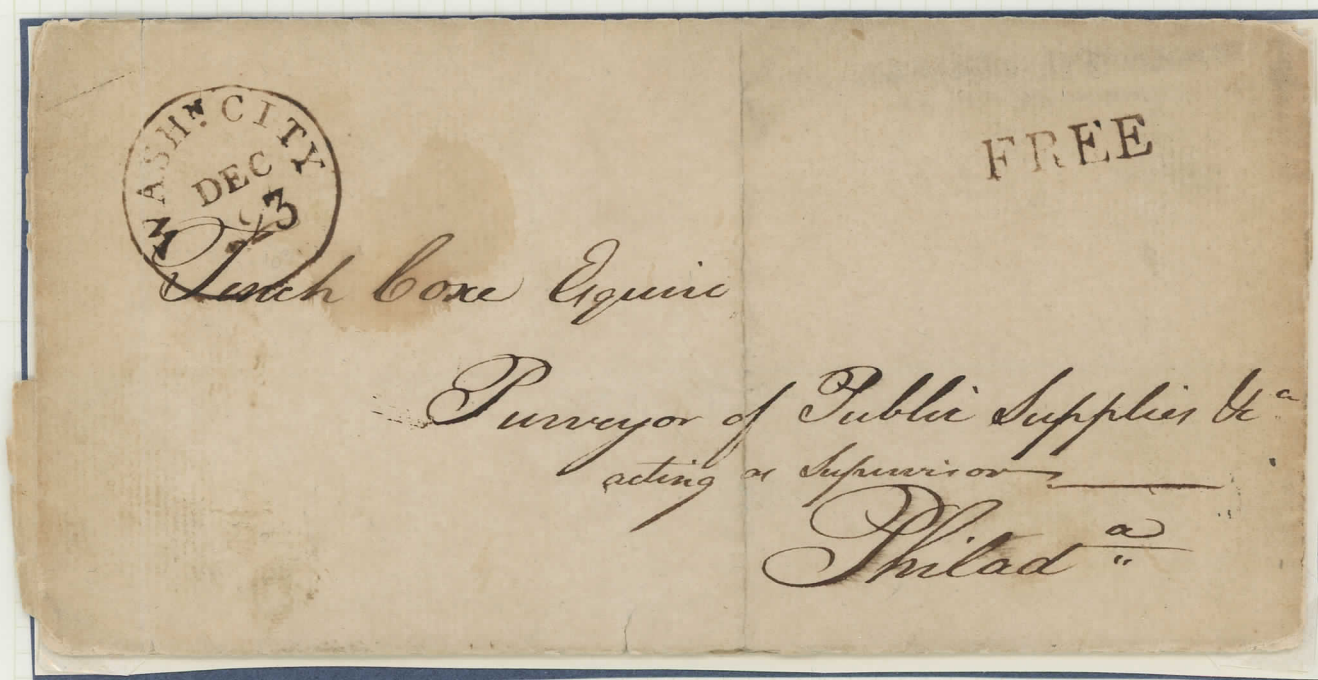 WASHN. CITY
DEC
23
FREE
Tench Coxe Esquire
Purveyor of Public Supplies &c a
acting as Supervisor
Philad a